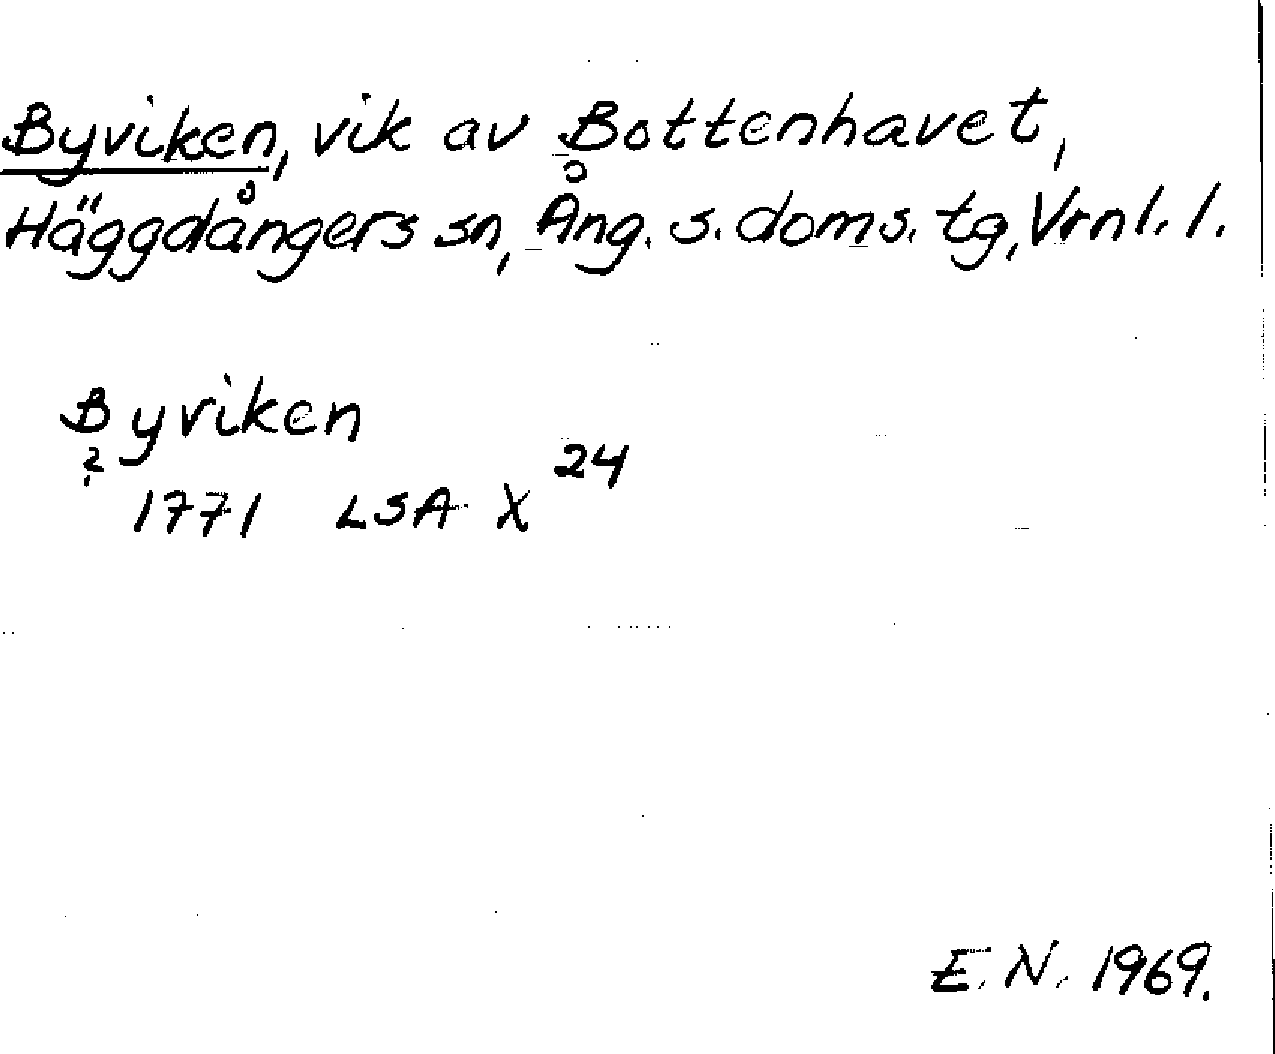 Byviken, vik av Bottenhavet,
Häggdångers sn, Ång. s. doms. tg, Vrnl. l.
Byviken
?
1771 LSA X 24
E. N. 1969.